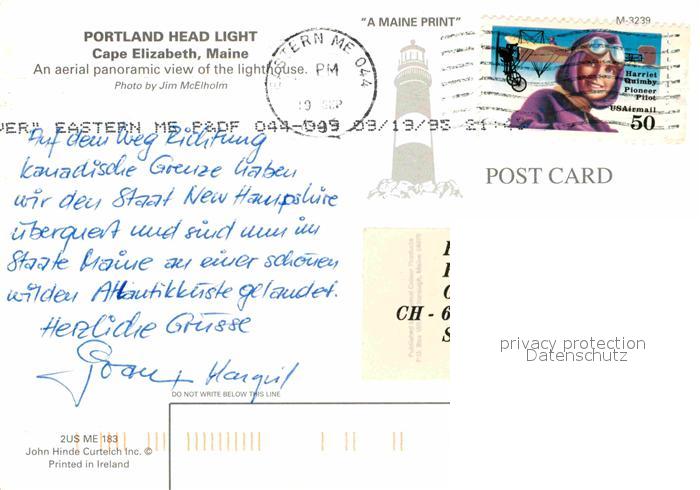 "A MAINE PRINT"
M-3239
PORTLAND HEAD LIGHT
Cape Elizabeth, Maine
An aerial panoramic view of the lighthouse.
Photo by Jim McElholm
EASTERN ME 044
PM
19 SEP
Harriet
Quimby
Pioneer
Pilot
USAirmail
50
EASTERN ME P&DF 044-009 09/19/95
POST CARD
Auf dem Weg Richtung
kanadische Grenze haben
wir den Staat New Hampshire
überquert und sind nun im
Staate Maine an einer schönen
wilden Atlantikküste gelandet.
Herzliche Grüsse
CH - 6
privacy protection
Datenschutz
DO NOT WRITE BELOW THIS LINE
2US ME 183
John Hinde Curteich Inc. ©
Printed in Ireland